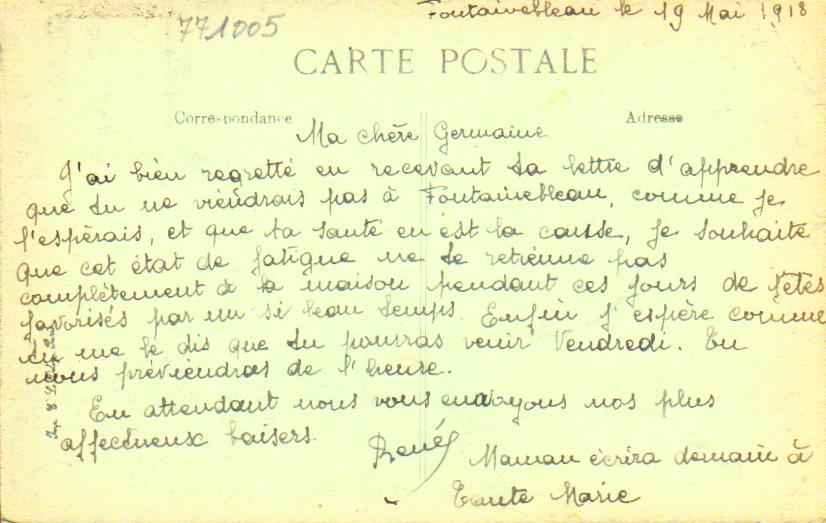 Fontainebleau le 19 Mai 1918
771005
CARTE POSTALE
Correspondance
Adresse
Ma chère Germaine
J'ai bien regretté en recevant ta lettre d'apprendre
que tu ne viendrais pas à Fontainebleau, comme je
l'espérais, et que ta santé en est la cause, je souhaite
que cet état de fatigue ne te retienne pas
complètement à la maison pendant ces jours de fêtes
favorisés par un si beau temps. Enfin j'espère comme
tu me le dis que tu pourras venir Vendredi. Tu
nous préviendras de l'heure.
En attendant nous vous envoyons nos plus
affectueux baisers.
René
Maman écrira demain à
Tante Marie